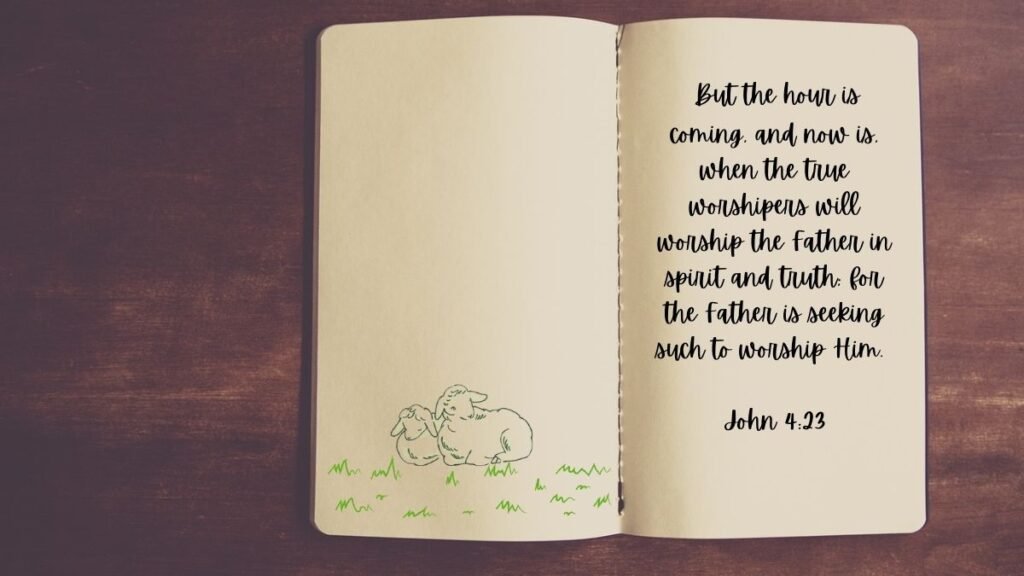 But the hour is
coming, and now is,
when the true
worshipers will
worship the Father in
spirit and truth; for
the Father is seeking
such to worship Him.
John 4:23